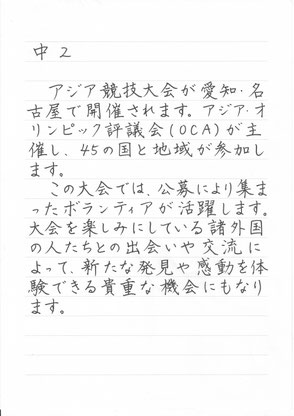 中2
アジア競技大会が愛知・名
古屋で開催されます。アジア・オ
リンピック評議会(OCA)が主
催し、45の国と地域が参加し
ます。
この大会では、公募により集ま
ったボランティアが活躍します。
大会を楽しみにしている諸外国
の人たちとの出会いや交流に
よって、新たな発見や感動を体
験できる貴重な機会にもなり
ます。